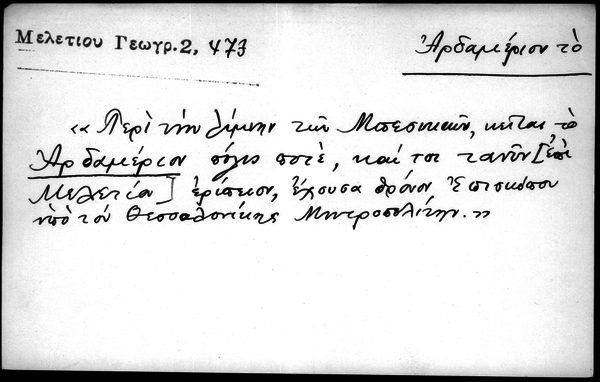 Μελετιου Γεωγρ.2, 473
Ἀρδαμέριον τὸ
«Περὶ τὴν λίμνην τῶν Μπεσικιῶν, κεῖται τὸ
Ἀρδαμέριον πόλις ποτὲ, καί τοι τανῦν [ἐπὶ
Μελετίου] ἐρίπειον, ἔχουσα θρόνον Ἐπισκόπου
ὑπὸ τὸν Θεσσαλονίκης Μητροπολίτην.»